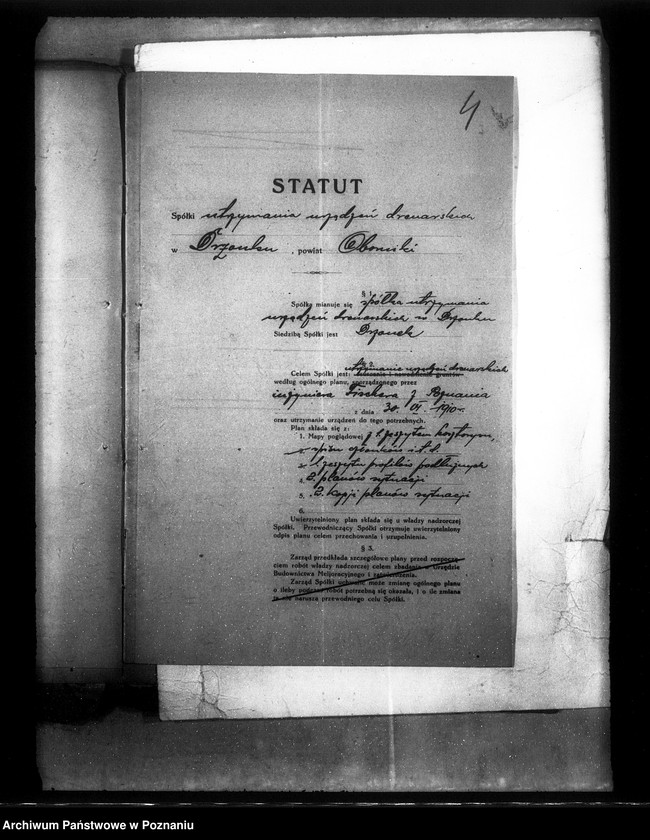 4
STATUT
Spółki utrzymania urządzeń drenarskich
w Drzonku , powiat Oborniki
§ 1.
Spółka mianuje się spółka utrzymania
urządzeń drenarskich w Drzonku
Siedzibą Spółki jest Drzonek
§ 2.
utrzymanie urządzeń drenarskich
Celem Spółki jest:
według ogólnego planu, sporządzonego przez
inżyniera Fischera z Poznania
z dnia 30. VI. 190
oraz utrzymanie urządzeń do tego potrzebnych.
Plan składa się z:
1. Mapy poglądowej z 1 zeszytem kosztorysu,
spisu członków i t. d.
1 zeszytu profilów podłużnych
4. 2 planów sytuacji
5. 2 kopji planów sytuacji
6.
Uwierzytelniony plan składa się u władzy nadzorczej
Spółki. Przewodniczący Spółki otrzymuje uwierzytelniony
odpis planu celem przechowania i uzupełnienia.
§ 3.
Zarząd przedkłada szczegółowe plany przed rozpoczę-
ciem robót władzy nadzorczej celem zbadania w Urzędzie
Budownictwa Meljoracyjnego i zatwierdzenia.
Zarząd Spółki uchwalić może zmianę ogólnego planu
o ileby podczas robót potrzebną się okazała, i o ile zmiana
ta nie narusza przewodniego celu Spółki.
Archiwum Państwowe w Poznaniu